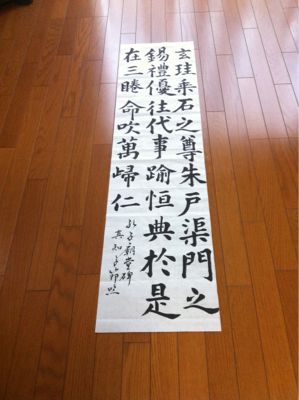 玄珪乗石之尊朱戸渠門之
錫禮優往代事踰恒典於是
在三睠命吹萬歸仁
孔子廟堂碑